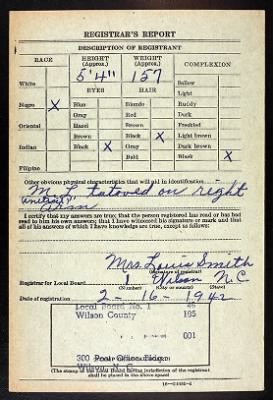 REGISTRAR'S REPORT
DESCRIPTION OF REGISTRANT
RACE HEIGHT (Approx.) WEIGHT (Approx.) COMPLEXION
5'4" 157
White Sallow
Light
EYES HAIR
Negro X Blue Blonde Ruddy
Gray Red Dark
Oriental Hazel Brown Freckled
Brown Black X Light brown
Indian Black X Gray Dark brown
Bald Black X
Filipino
Other obvious physical characteristics that will aid in identification
M. tatooed on right
arm
I certify that my answers are true; that the person registered has read or has had
read to him his own answers; that I have witnessed his signature or mark and that
all of his answers of which I have knowledge are true, except as follows:
Mrs. Louis Smith
(Signature of registrar)
Registrar for Local Board 1 Wilson N.C
Date of registration 2-16-1942
Local Board No. 1 46
Wilson County 195
001
300 Post Office Bldg.
Wilson, N. C.
(STAMP OF LOCAL BOARD)
(The stamp of the Local Board having jurisdiction of the registrant
shall be placed in the above space)